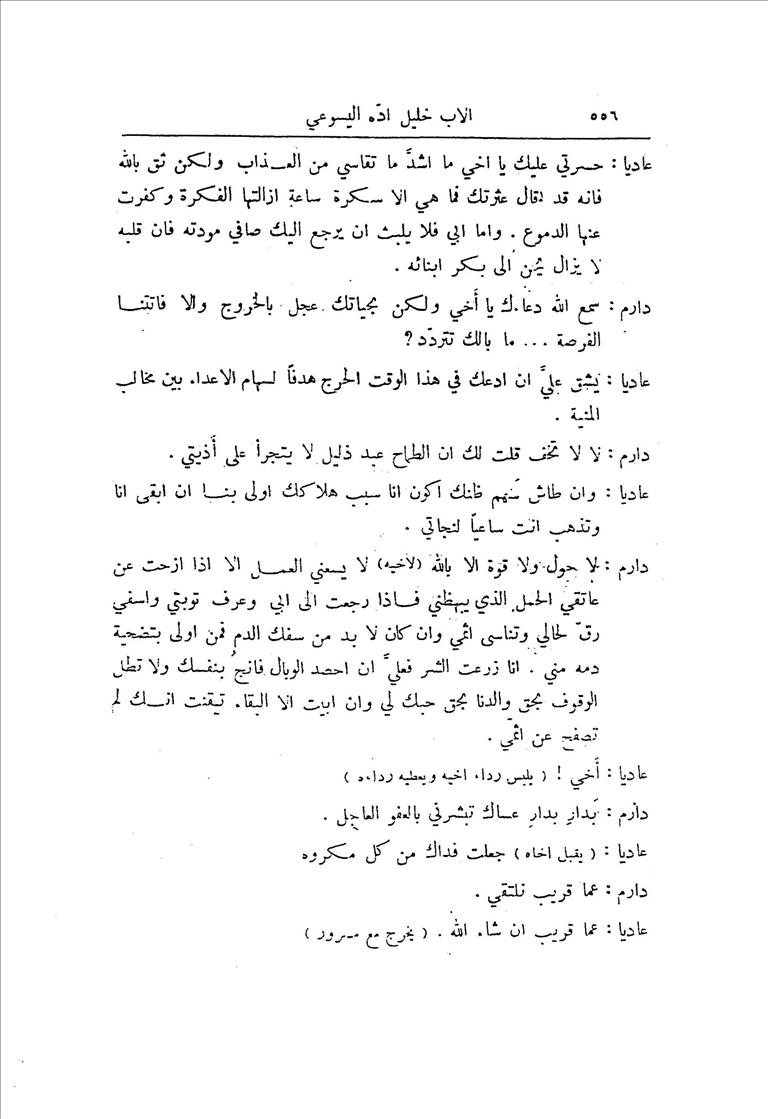 ٥٥٦ الاب خليل ادّه اليسوعي
عاديا : حسرتي عليك يا اخي ما اشدَّ ما تقاسي من العـذاب ولكن ثق بالله
فانه قد يقال عثرتك فما هي الا سكرة ساعة ازالتها الفكرة وكفرت
عنها الدموع . واما ابي فلا يلبث ان يرجع اليك صافي مودته فان قلبه
لا يزال يحنّ الى بكر ابنائه .
دارم : سمع الله دعاءك يا أخي ولكن بحياتك عجل بالخروج والا فاتتنـا
الفرصة ... ما بالك تتردّد ؟
عاديا : يشق عليَّ ان ادعك في هذا الوقت الحرج هدفاً لسهام الاعداء بين مخالب
المنية .
دارم : لا لا تخف قلت لك ان الطماح عبد ذليل لا يتجرأ على أذيتي .
عاديا : وان طاش سهم فانك اكون انا سبب هلاكك اولى بنـا ان ابقى انا
وتذهب انت ساعياً لنجاتي .
دارم : لا حول ولا قوة الا بالله (لاخيه) لا يسعني العمـل الا اذا ازحت عن
عاتقي الحمل الذي يبهظني فـاذا رجعت الى ابي وعرف توبتي واسفي
رقّ لحالي وتناسى اثمي وان كان لا بد من سفك الدم فمن اولى بتضحية
دمه مني . انا زرعت الشر فعليَّ ان احصد الوبال فانجُ بنفسك ولا تطل
الوقوف بحق والدنا بحق حبك لي وان ابيت الا البقاء تيقنت انـك لم
تصفح عن اثمي .
عاديا : أخي ! ( يلبس رداء اخيه ويعطيه رداءه )
دارم : بَدارِ بدارِ عساك تبشرني بالعفو العاجل .
عاديا : ( يقبل اخاه ) جعلت فداك من كل مكروه
دارم : عما قريب نلتقي .
عاديا : عما قريب ان شاء الله . ( يخرج مع مسرور )